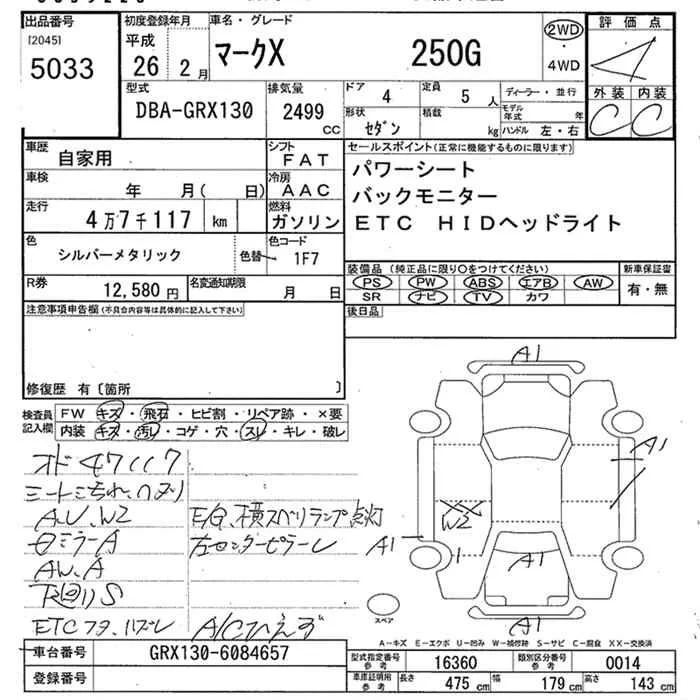 出品番号
[2045]
5033
初度登録年月
平成
26 2月
車名・グレード
マークX 250G
2WD
4WD
評価点
4
外装 内装
C C
型式
DBA-GRX130
排気量
2499
CC
ドア 4
形状 セダン
定員 5 人
積載 kg
ディーラー・並行
モデル年式 年
ハンドル 左・右
車歴
自家用
シフト
FAT
車検
年 月( 日)
冷房
AAC
走行
4万7千117 km
燃料
ガソリン
色
シルバーメタリック
色替
色コード
1F7
R券
12,580円
名変通知期限
月 日
セールスポイント(正常に機能するものに限ります)
パワーシート
バックモニター
ETC HIDヘッドライト
装備品(純正品に限り○をつけてください)
PS PW ABS エアB AW
SR ナビ TV カワ
新車保証書
有・無
注意事項申告欄(不具合内容等は具体的に記入して下さい)
後日品
修復歴 有〔箇所 〕
検査員
記入欄
FW キズ・飛石・ヒビ割・リペア跡・×要
内装 キズ・汚レ・コゲ・穴・スレ・キレ・破レ
オド47117
A.U、W2
E/G、横スベリランプ点灯
ミラーA
左センターピラー
AW、A
下回りS
ETCフタ、ハズレ
A1
A1
XX
W2
A1
A1
A1
スペア
A-キズ E-エクボ U-凹み W-補修跡 S-サビ C-腐食 XX-交換済
車台番号
GRX130-6084657
登録番号
型式指定番号
参考
16360
類別区分番号
参考
0014
車庫証明用
参考
長さ 475cm 幅 179cm 高さ 143cm